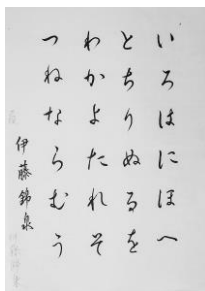 いろはにほへ
とちりぬるを
わかよたれそ
つねならむう
伊藤錦泉